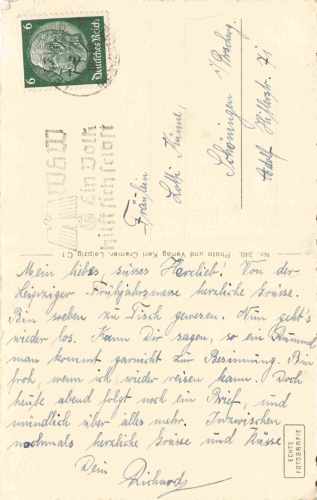 6
6
Deutsches Reich
WHW
Ein Volk
hilft sich selbst
Fräulein
Lotti Kümmel,
Schöningen
Adolf Hitlerstr. 71
Nr. 340 Photo und Verlag Karl Cramer Leipzig C1
Mein liebes, süsses Herzlieb! Von der
Leipziger Frühjahrsmesse herzliche Grüsse.
Bin soeben zu Tisch gewesen. Nun geht's
wieder los. Kann Dir sagen, so ein Rummel
man kommt garnicht zur Besinnung. Bin
froh, wenn ich wieder reisen kann. Doch
heute abend folgt noch ein Brief, und
mündlich über alles mehr. Inzwischen
nochmals herzliche Grüsse und Küsse
Dein Richard
ECHTE
FOTOGRAFIE